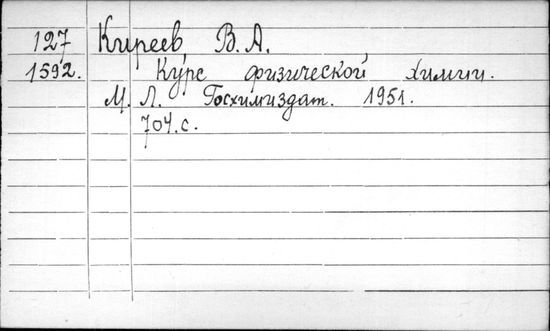 127 Киреев, В. А.
1592. Курс физической химии.
М. Л. Госхимиздат. 1951.
704.с.